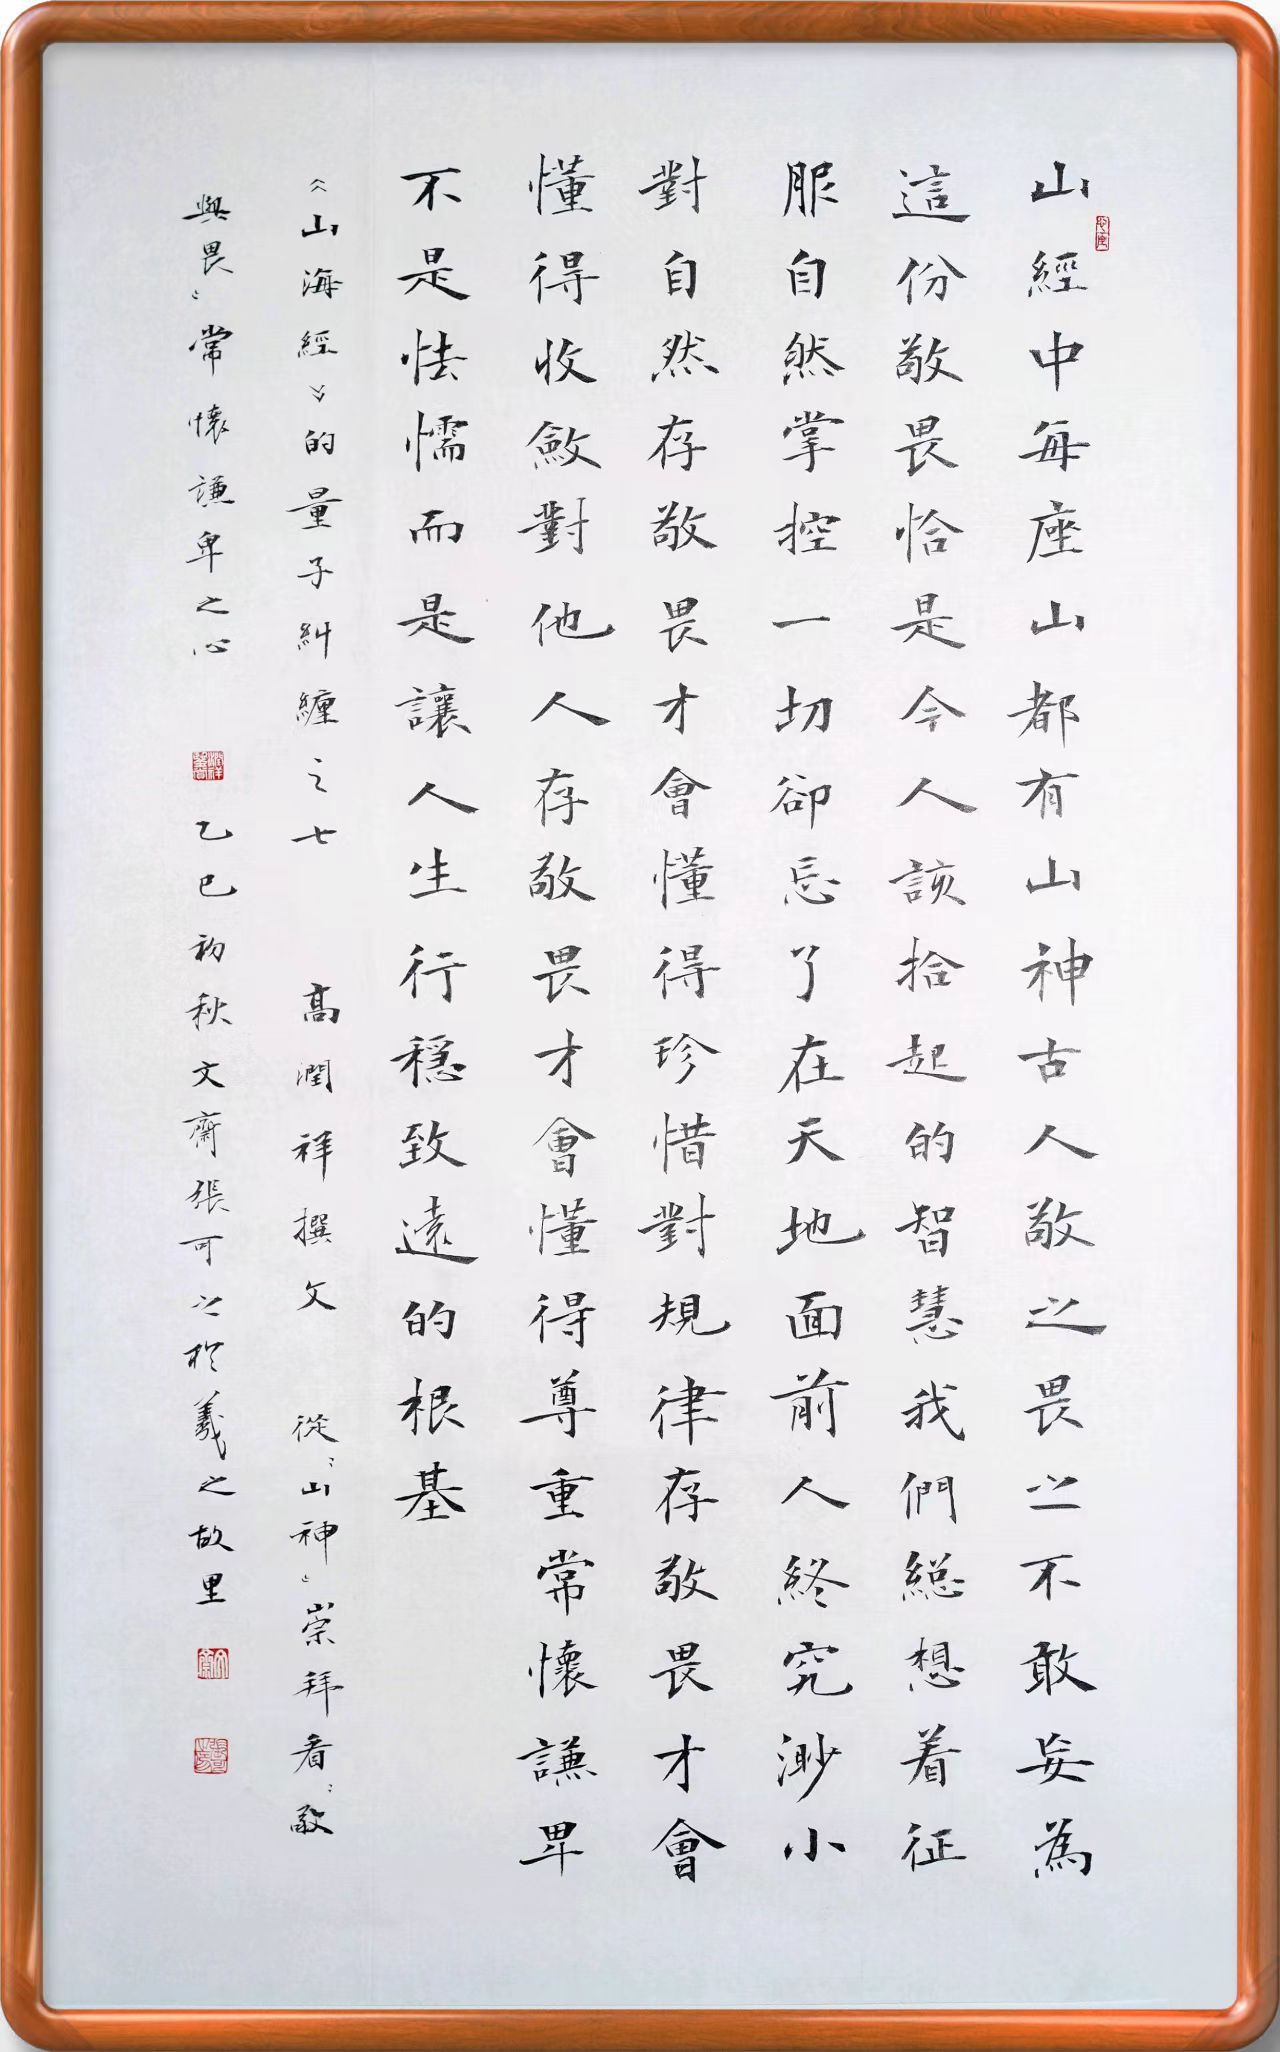 山經中每座山都有山神古人敬之畏之不敢妄為
這份敬畏恰是今人該拾起的智慧我們總想着征
服自然掌控一切卻忘了在天地面前人終究渺小
對自然存敬畏才會懂得珍惜對規律存敬畏才會
懂得收斂對他人存敬畏才會懂得尊重常懷謙卑
不是怯懦而是讓人生行穩致遠的根基
《山海經》的量子糾纏之七 高潤祥撰文 從“山神”崇拜看“敬
與畏”常懷謙卑之心 乙巳初秋文齋張可之於羲之故里